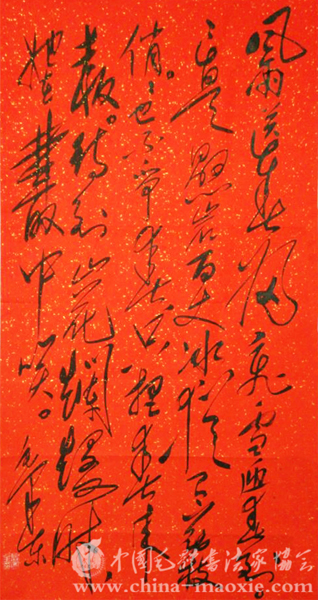 風雨送春歸飛雪迎春到
已是懸崖百丈冰猶有花枝
俏。也不爭春只把春来
報。待到山花爛熳时
她在叢中笑。毛泽东
中國毛體書法家協會
www.china-maoxie.com